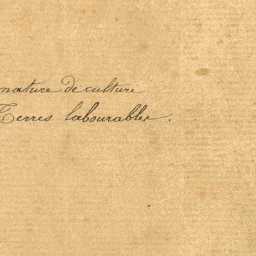 nature de culture
Terres labourables.